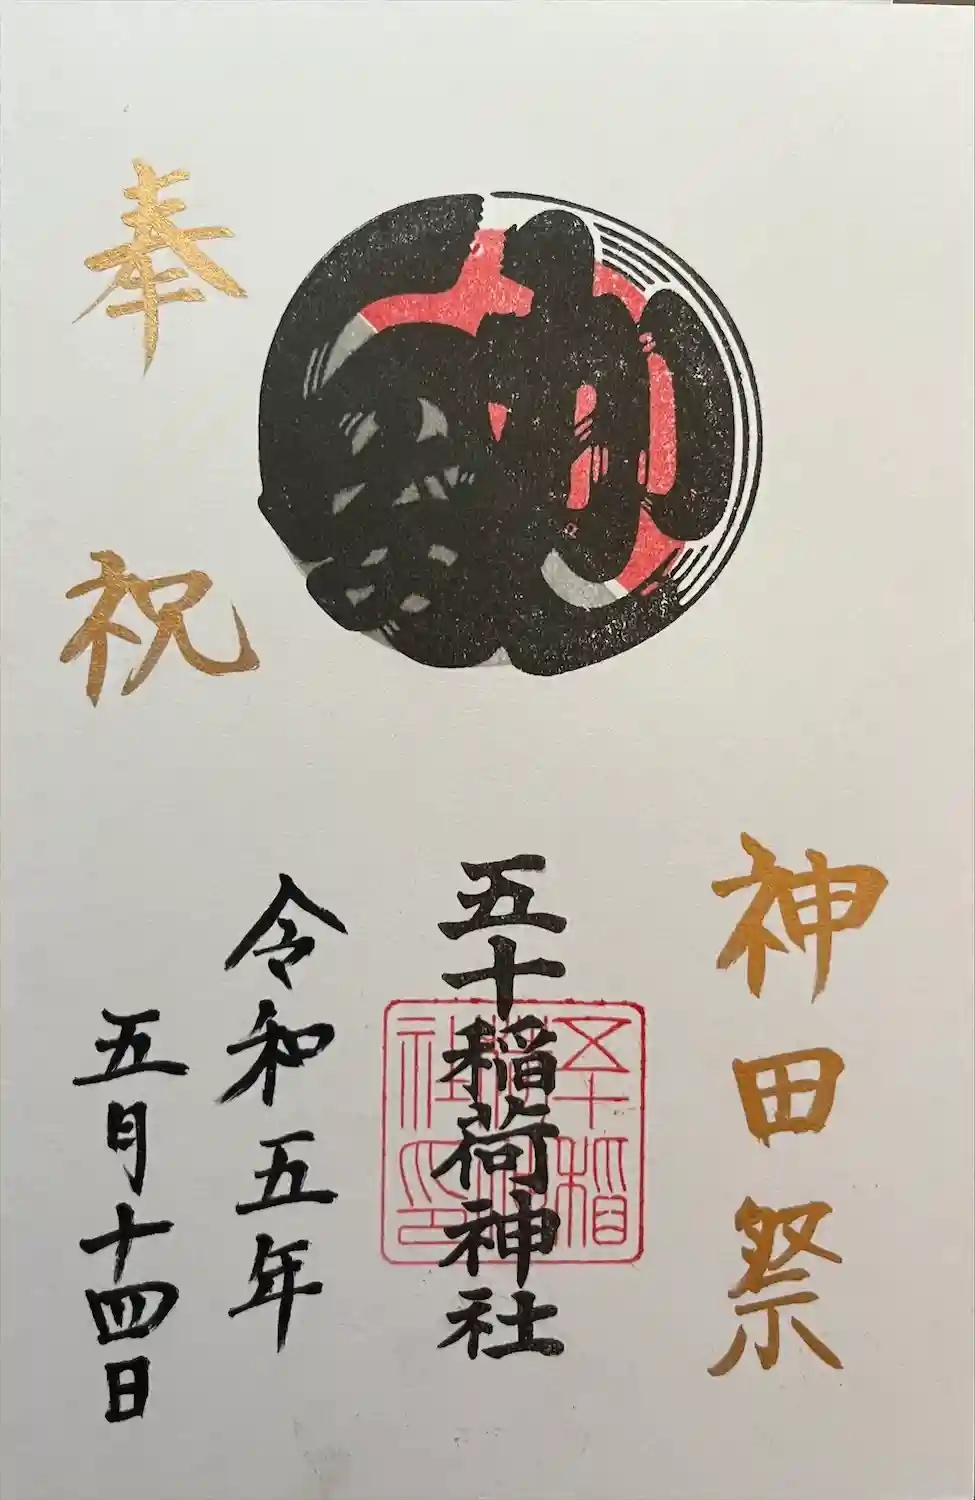 神田祭
五十稲荷神社
奉祝
令和五年
五月十四日